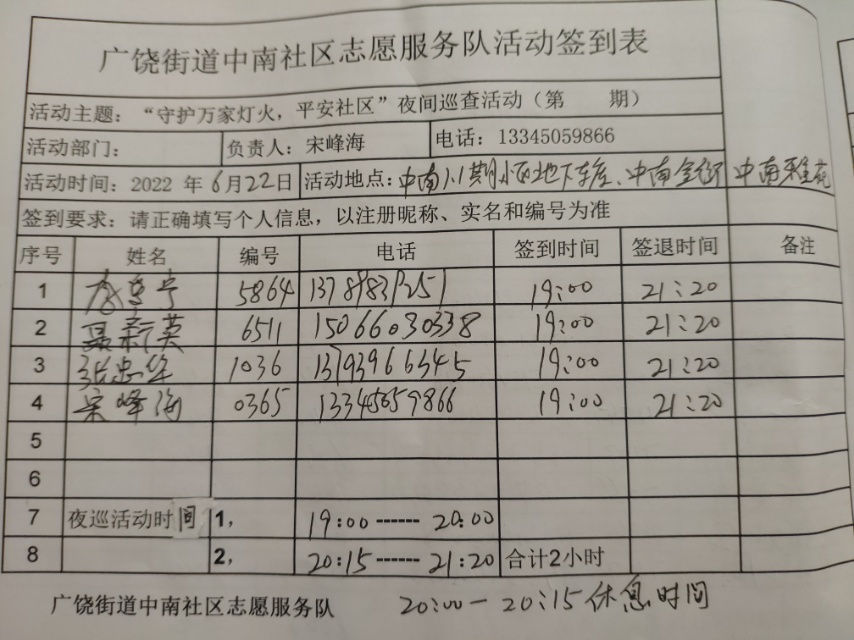 广饶街道中南社区志愿服务队活动签到表
活动主题：“守护万家灯火，平安社区”夜间巡查活动（第 期）
活动部门： 负责人：宋峰海 电话：13345059866
活动时间：2022 年 6月22日 活动地点：中南1.1期小区地下车库、中南金街 中南雅苑
签到要求：请正确填写个人信息，以注册昵称、实名和编号为准
序号 姓名 编号 电话 签到时间 签退时间 备注
1 5864 19:00 21:20
2 聂新英 6511 15066030338 19:00 21:20
3 张忠华 1036 13793966345 19:00 21:20
4 宋峰海 0365 13345059866 19:00 21:20
5
6
7 夜巡活动时间 1， 19:00 ------ 20:00
8 2， 20:15 ------ 21:20 合计2小时
广饶街道中南社区志愿服务队 20:00－20:15休息时间